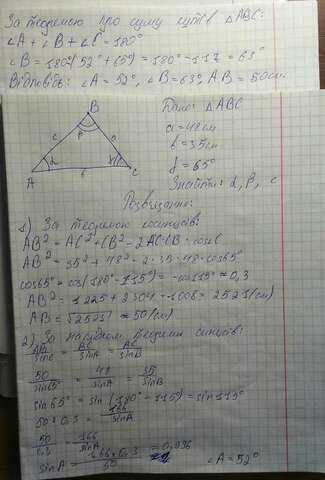 За теоремою про суму кутів △ABC:
∠A + ∠B + ∠C = 180°
∠B = 180°(52° + 65°) = 180° - 117 = 63°
Відповідь: ∠A = 52°, ∠B = 63°, AB = 50см.
Дано: △ABC
a = 48см
b = 35см
γ = 65°
Знайти: α, β, c
B
β
c
a
α
γ
A
b
C
Розв'язання:
1) За теоремою косинусів:
AB² = AC² + CB² - 2AC·CB · cosC
AB² = 35² + 48² - 2·35·48·cos65°
cos65° = cos(180° - 115°) = -cos115° ≈ 0,3
AB² = 1225 + 2304 - 1008 = 2521(см)
AB = √2521 ≈ 50(см)
2) За наслідком теореми синусів:
AB/sinC = BC/sinA = AC/sinB
50/sin65° = 48/sinA = 35/sinB
sin65° = sin(180° - 115) = sin115°
50 · 0,3 = 166/sinA
50/0,3 = 166/sinA
sinA = 166·0,3/50 ≈ 0,996
∠A = 52°